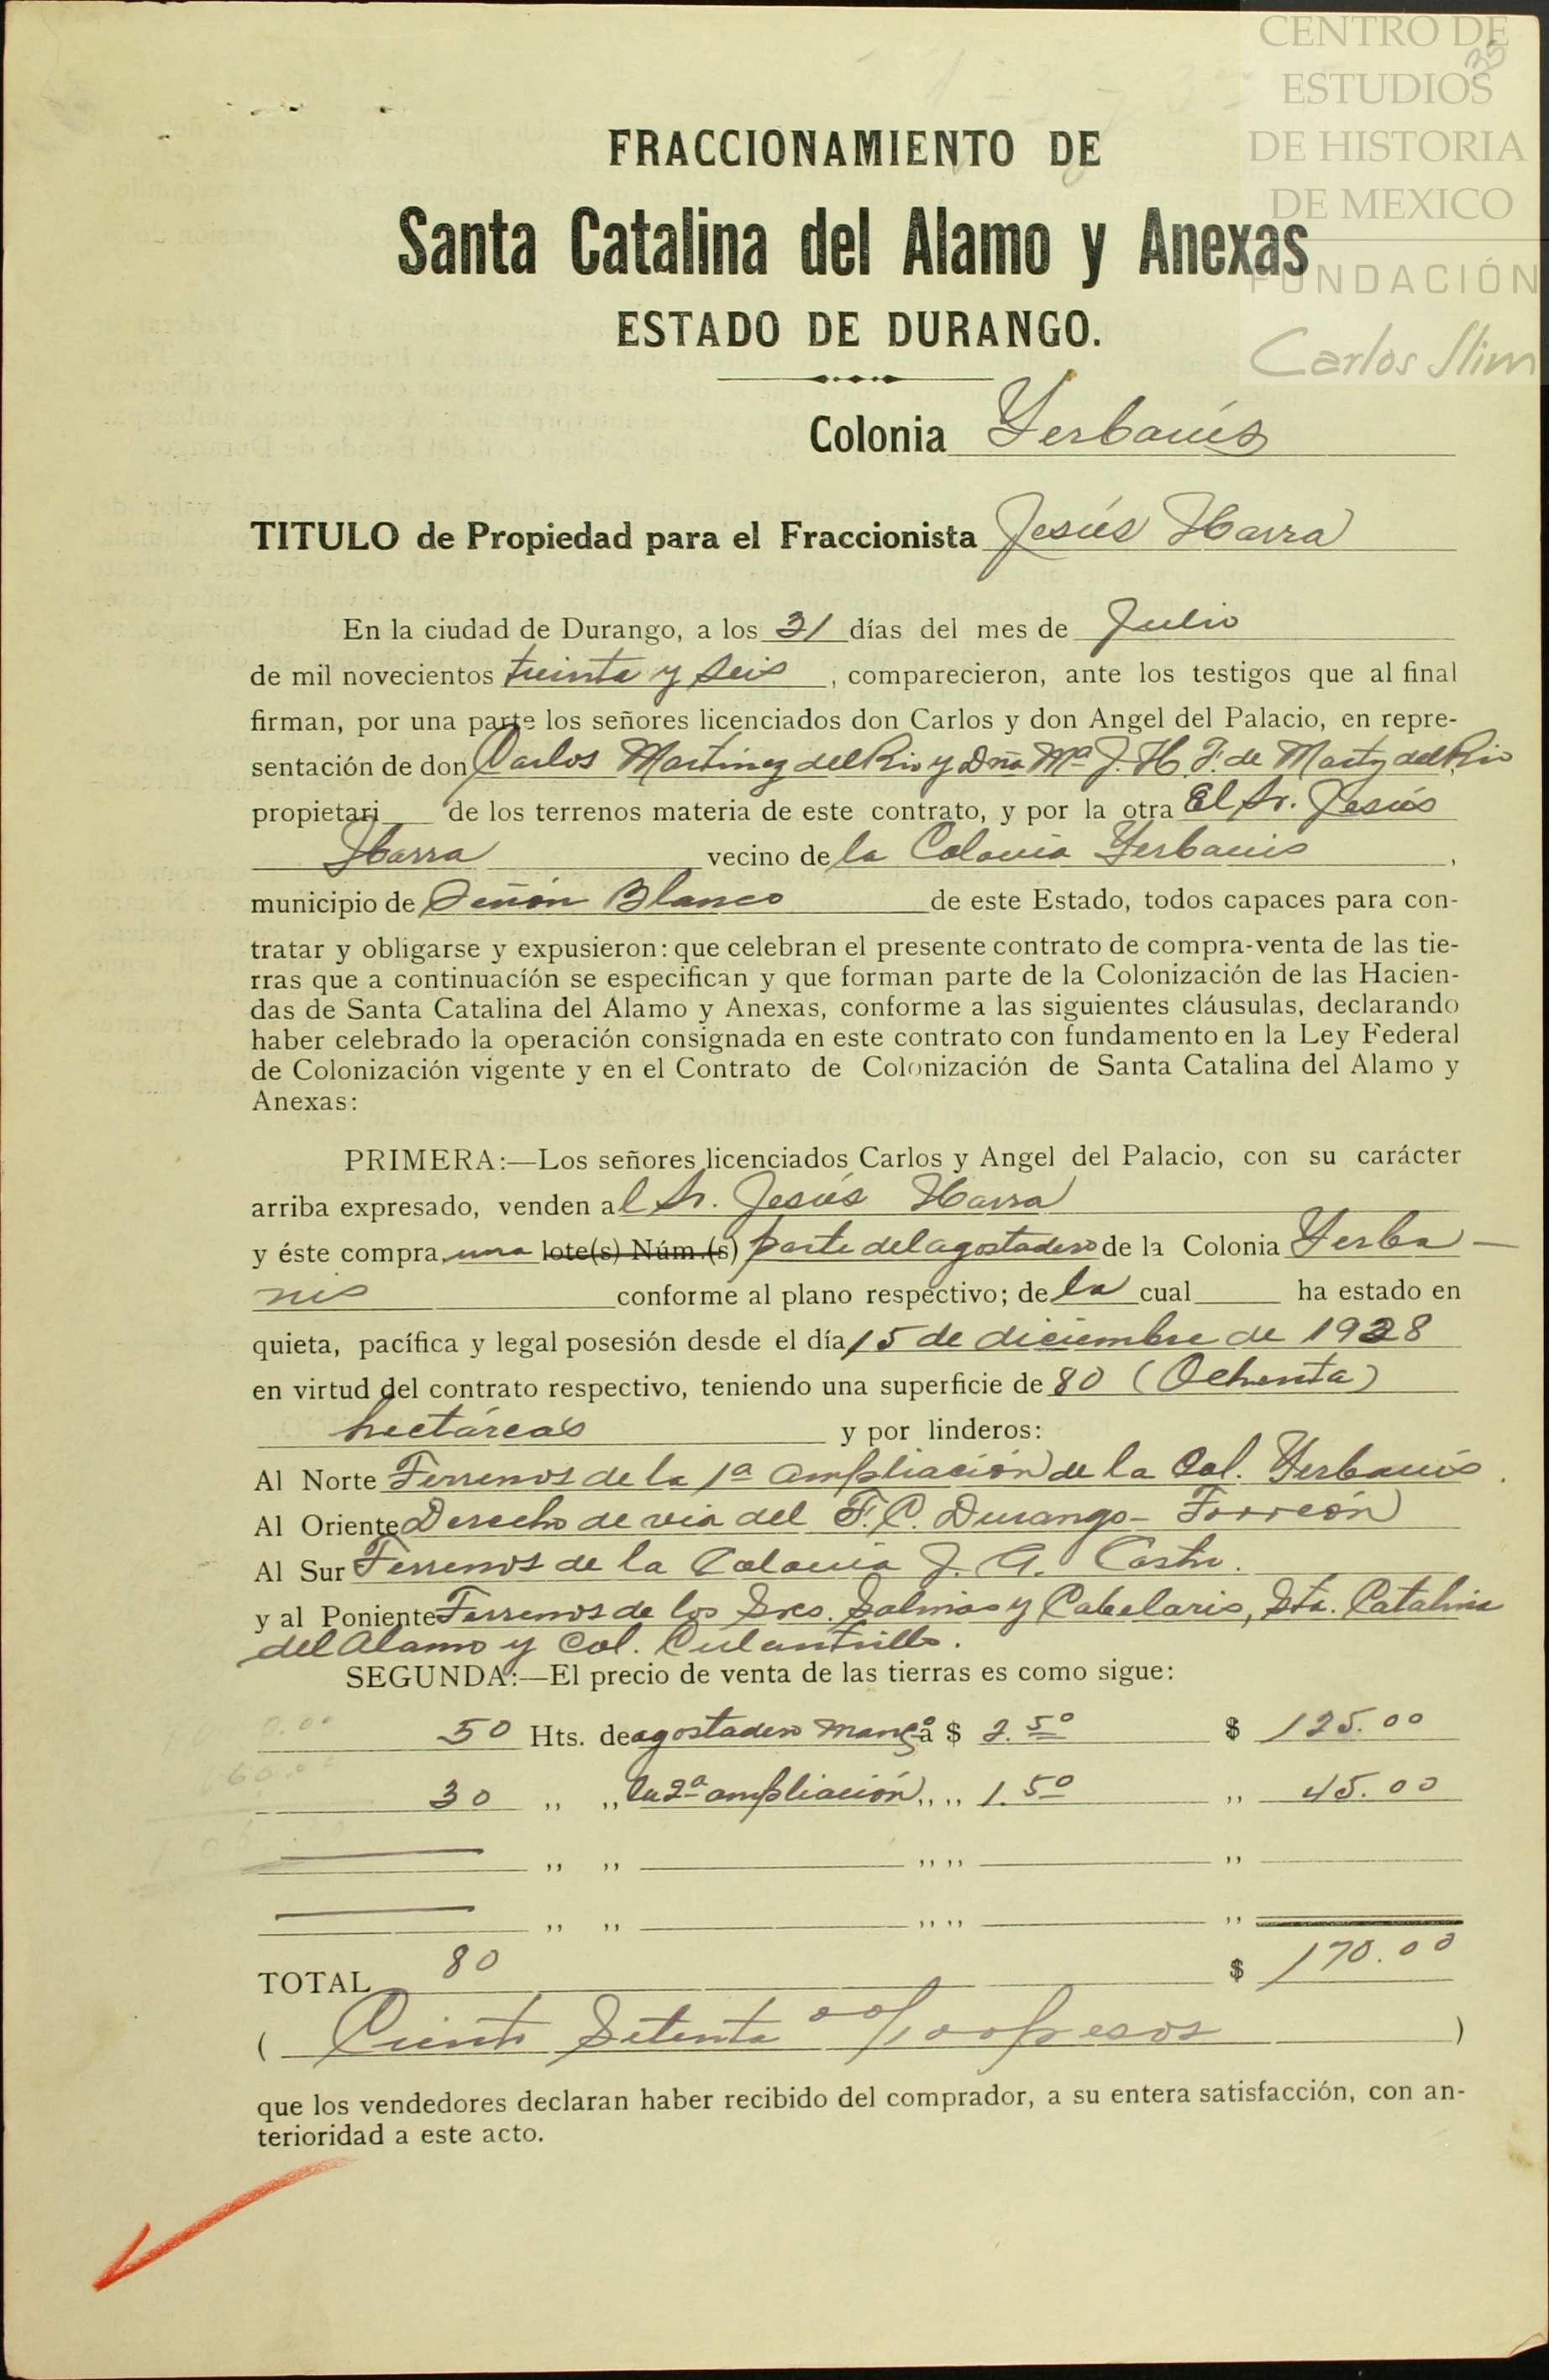 CENTRO DE
ESTUDIOS
DE HISTORIA
DE MEXICO
FUNDACIÓN
Carlos Slim
35
FRACCIONAMIENTO DE
Santa Catalina del Alamo y Anexas
ESTADO DE DURANGO.
Colonia Yerbanís
TITULO de Propiedad para el Fraccionista Jesús Ibarra
En la ciudad de Durango, a los 31 días del mes de Julio
de mil novecientos treinta y seis, comparecieron, ante los testigos que al final
firman, por una parte los señores licenciados don Carlos y don Angel del Palacio, en repre-
sentación de don Carlos Martínez del Rio y Dña Mª J. H. F. de Martz del Rio
propietari de los terrenos materia de este contrato, y por la otra El Sr. Jesús
Ibarra vecino de la Colonia Yerbanis,
municipio de Peñón Blanco de este Estado, todos capaces para con-
tratar y obligarse y expusieron: que celebran el presente contrato de compra-venta de las tie-
rras que a continuación se especifican y que forman parte de la Colonización de las Hacien-
das de Santa Catalina del Alamo y Anexas, conforme a las siguientes cláusulas, declarando
haber celebrado la operación consignada en este contrato con fundamento en la Ley Federal
de Colonización vigente y en el Contrato de Colonización de Santa Catalina del Alamo y
Anexas:
PRIMERA:—Los señores licenciados Carlos y Angel del Palacio, con su carácter
arriba expresado, venden al Sr. Jesús Ibarra
y éste compra una lote(s) Núm.(s) parte del agostadero de la Colonia Yerba-
nis conforme al plano respectivo; de la cual ha estado en
quieta, pacífica y legal posesión desde el día 15 de diciembre de 1928
en virtud del contrato respectivo, teniendo una superficie de 80 (Ochenta)
hectáreas y por linderos:
Al Norte Terrenos de la 1ª ampliación de la Col. Yerbanís.
Al Oriente Derecho de via del F.C. Durango-Torreón
Al Sur Terrenos de la Colonia J. A. Castro.
y al Poniente Terrenos de los Sres. Salinas y Cabelaris, Sta. Catalina
del Alamo y Col. Culantrillo.
SEGUNDA:—El precio de venta de las tierras es como sigue:
50 Hts. de agostadero mang° a $ 2.50 $ 125.00
30 ,, ,, la 2ª ampliación ,, ,, 1.50 ,, 45.00
,, ,, ,, ,, ,,
,, ,, ,, ,, ,,
TOTAL 80 $ 170.00
( Ciento Setenta 00/100 pesos )
que los vendedores declaran haber recibido del comprador, a su entera satisfacción, con an-
terioridad a este acto.